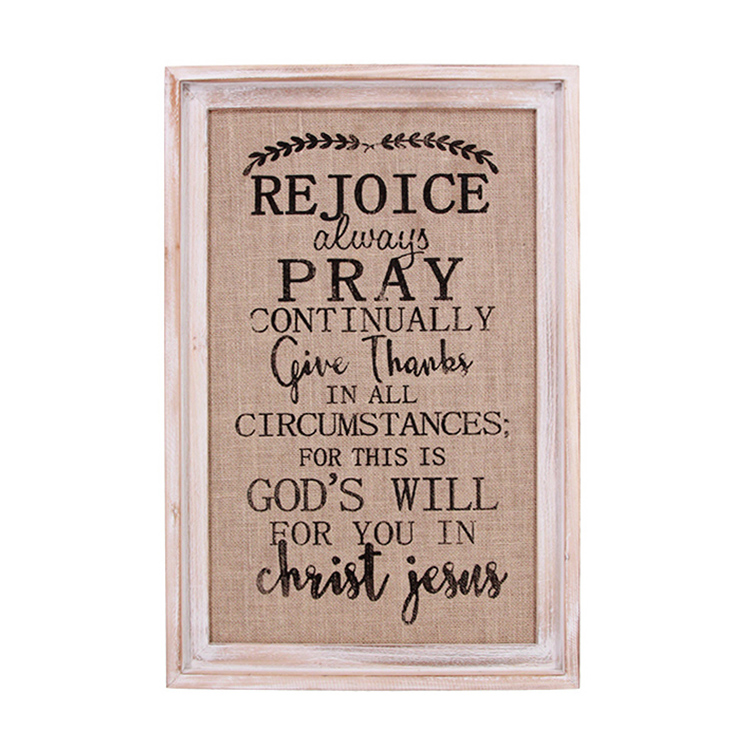 REJOICE
always
PRAY
CONTINUALLY
Give Thanks
IN ALL
CIRCUMSTANCES;
FOR THIS IS
GOD'S WILL
FOR YOU IN
christ jesus